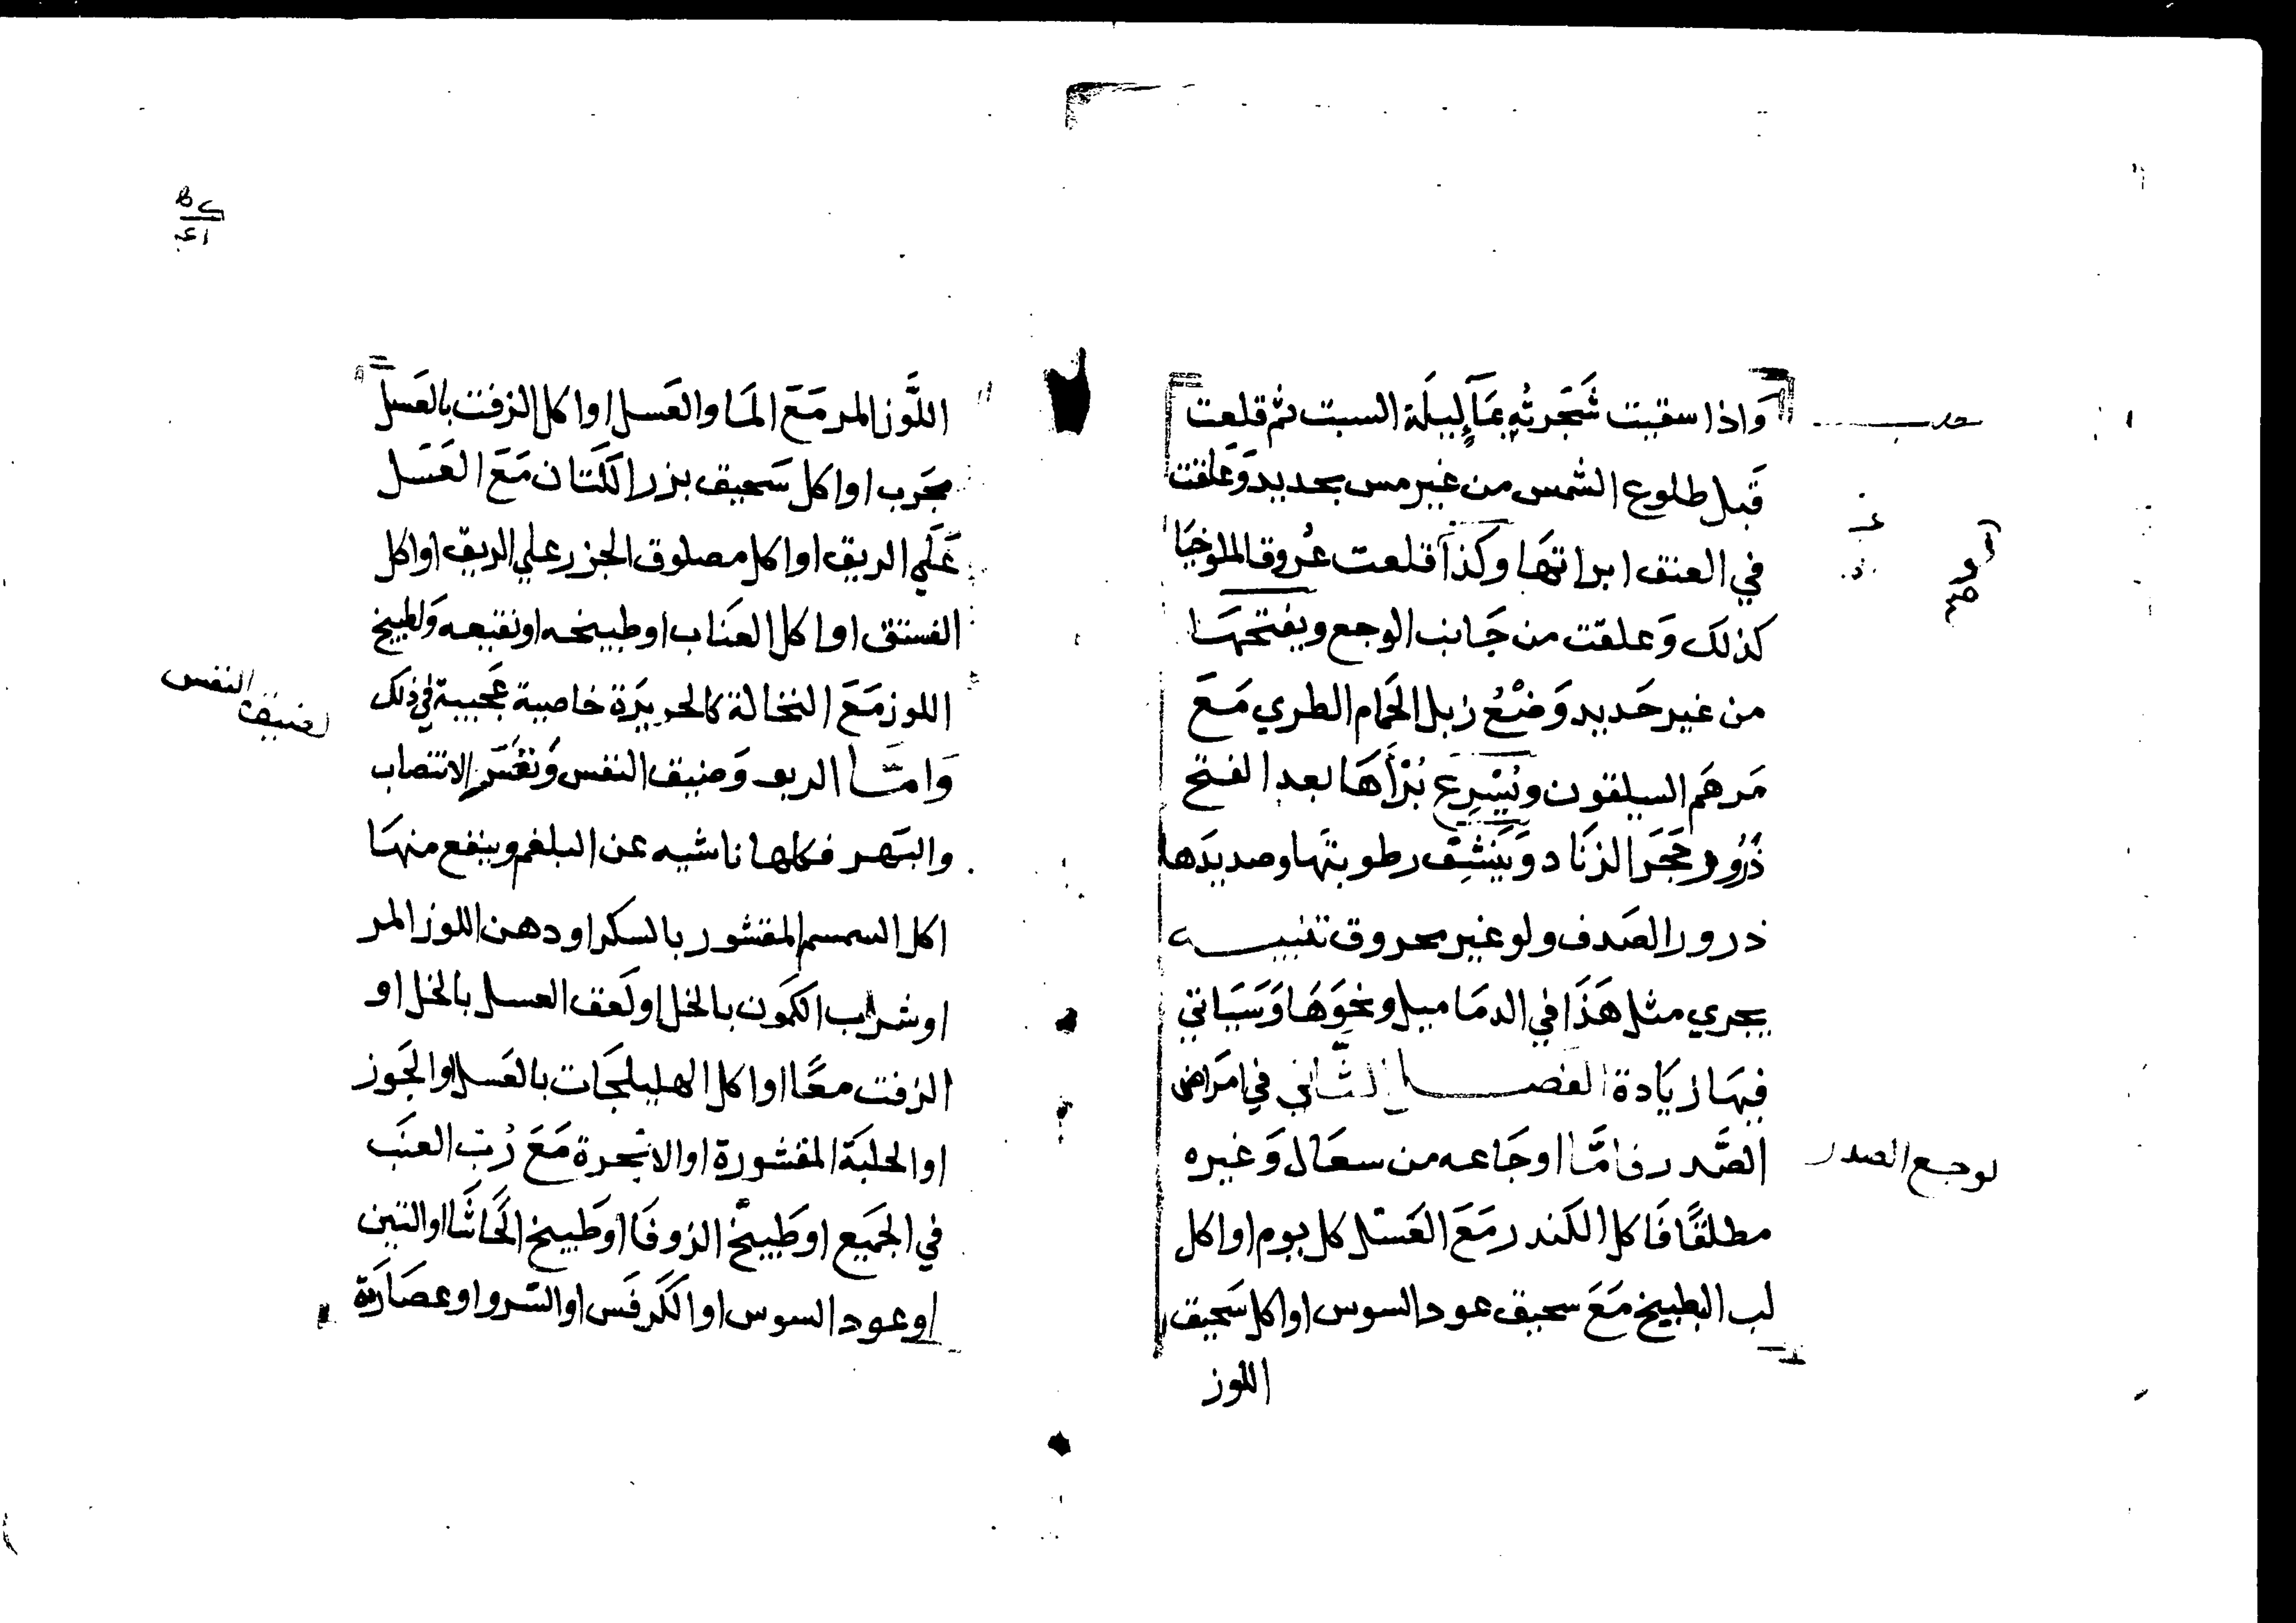 واذا سقيت شَجرته بمآءٍ ليلَة السبت ثم قلعت
قَبل طلوع الشمس من غير مس بحديد وَعَلقت
في العنق ابراتهَا وكذآ قلعت عُروق الملوخيَا
كذلك وَعلقت من جَانب الوجع ويفتحهَا
من غير حَديد وَضْعُ زبل الحَمام الطري مَعَ
مَرهَم السيلقون ويُسْرِع بُرْأهَا بعد الفتح
ذَرُور حَجَر الزنَاد وَيَنشِف رطوبتهَا وصديدَها
ذرور الصَدف ولو غير محروق تنبيــه
يجري مثل هَذَا في الدمَاميل ونحوَهَا وَسَيَاتي
فيهَا زيَادة الفصــل الثَّاني في امرَاض
الصَّدر فامَّا اوجَاعه من سعَال وَغيره
مطلقًا فَاكل الكندر مَعَ العَسَل كل يوم او اكل
لب البطيخ مَعَ سحيق عود السوس او اكل سَحيق
اللوز
لوجع الصدر
اللَّوز المر مَعَ المَا والعَسل او اكل الزفت بالعَسل
مجَرب او اكل سَحيق بزر الكَتان مَعَ العَسَل
عَلَي الريق او اكل مصلوق الجزر علي الريق او اكل
الفستق او اكل العنَاب او طبيخه او نقيعه وَلطبيخ
اللوز مَعَ النخالة كالحريرَة خاصية عَجيبة في ذلك
وَامَّـا الربو وَضيق النفس وَنفَسَ الانتصاب
والبَهر فكلها ناشيه عن البلغم وينفع منهَا
اكل السمسم المقشور بالسكر او دهن اللوز المر
او شراب الكمون بالخل او لَعق العسل بالخل او
الزفت معًا او اكل الهليلجَات بالعَسل او الجَوز
او الحلبَة المقشورة او الانجرة مَعَ رُبّ العنَب
في الجَميع او طَبيخ الزوفَا او طَبيخ الحَاشَا او التين
او عود السوس او الكَرفَس او السَرو او عصَارة
لضيق النفس